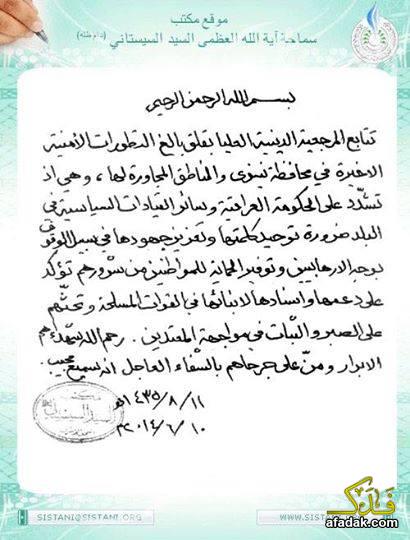 موقع مكتب
سماحة آية الله العظمى السيد السيستاني (دام ظله)
بسم الله الرحمن الرحيم
تتابع المرجعية الدينية العليا بقلق بالغ التطورات الأمنية
الاخيرة في محافظة نينوى والمناطق المجاورة لها ، وهي اذ
تشدّد على الحكومة العراقية وسائر القيادات السياسية في
البلد ضرورة توحيد كلمتها وتعزيز جهودها في سبيل الوقوف
بوجه الارهابيين وتوفير الحماية للمواطنين من شرورهم تؤكد
على دعمها واسنادها لابنائها في القوات المسلحة وتحثّهم
على الصبر والثبات في مواجهة المعتدين . رحم الله شهداءهم
الابرار ومنّ على جرحاهم بالشفاء العاجل انه سميع مجيب .
١١ / ٨ / ١٤٣٥هـ
١٠ / ٦ / ٢٠١٤م
السيد السيستاني
SISTANI@SISTANI.ORG
WWW.SISTANI.ORG
فدک
afadak.com